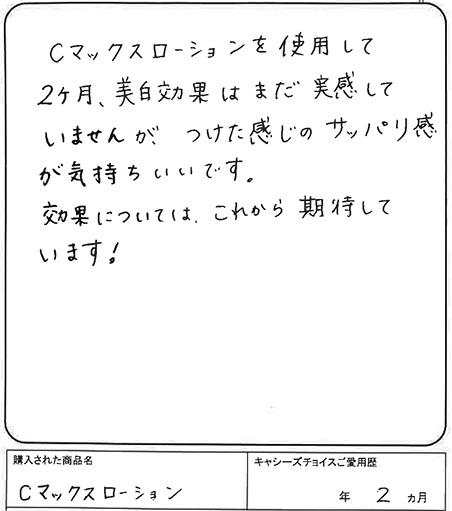 Cマックスローションを使用して
2ケ月、美白効果はまだ実感して
いませんが、つけた感じのサッパリ感
が気持ちいいです。
効果については、これから期待して
います!
購入された商品名
キャシーズチョイスご愛用歴
Cマックスローション
年 2 ヵ月